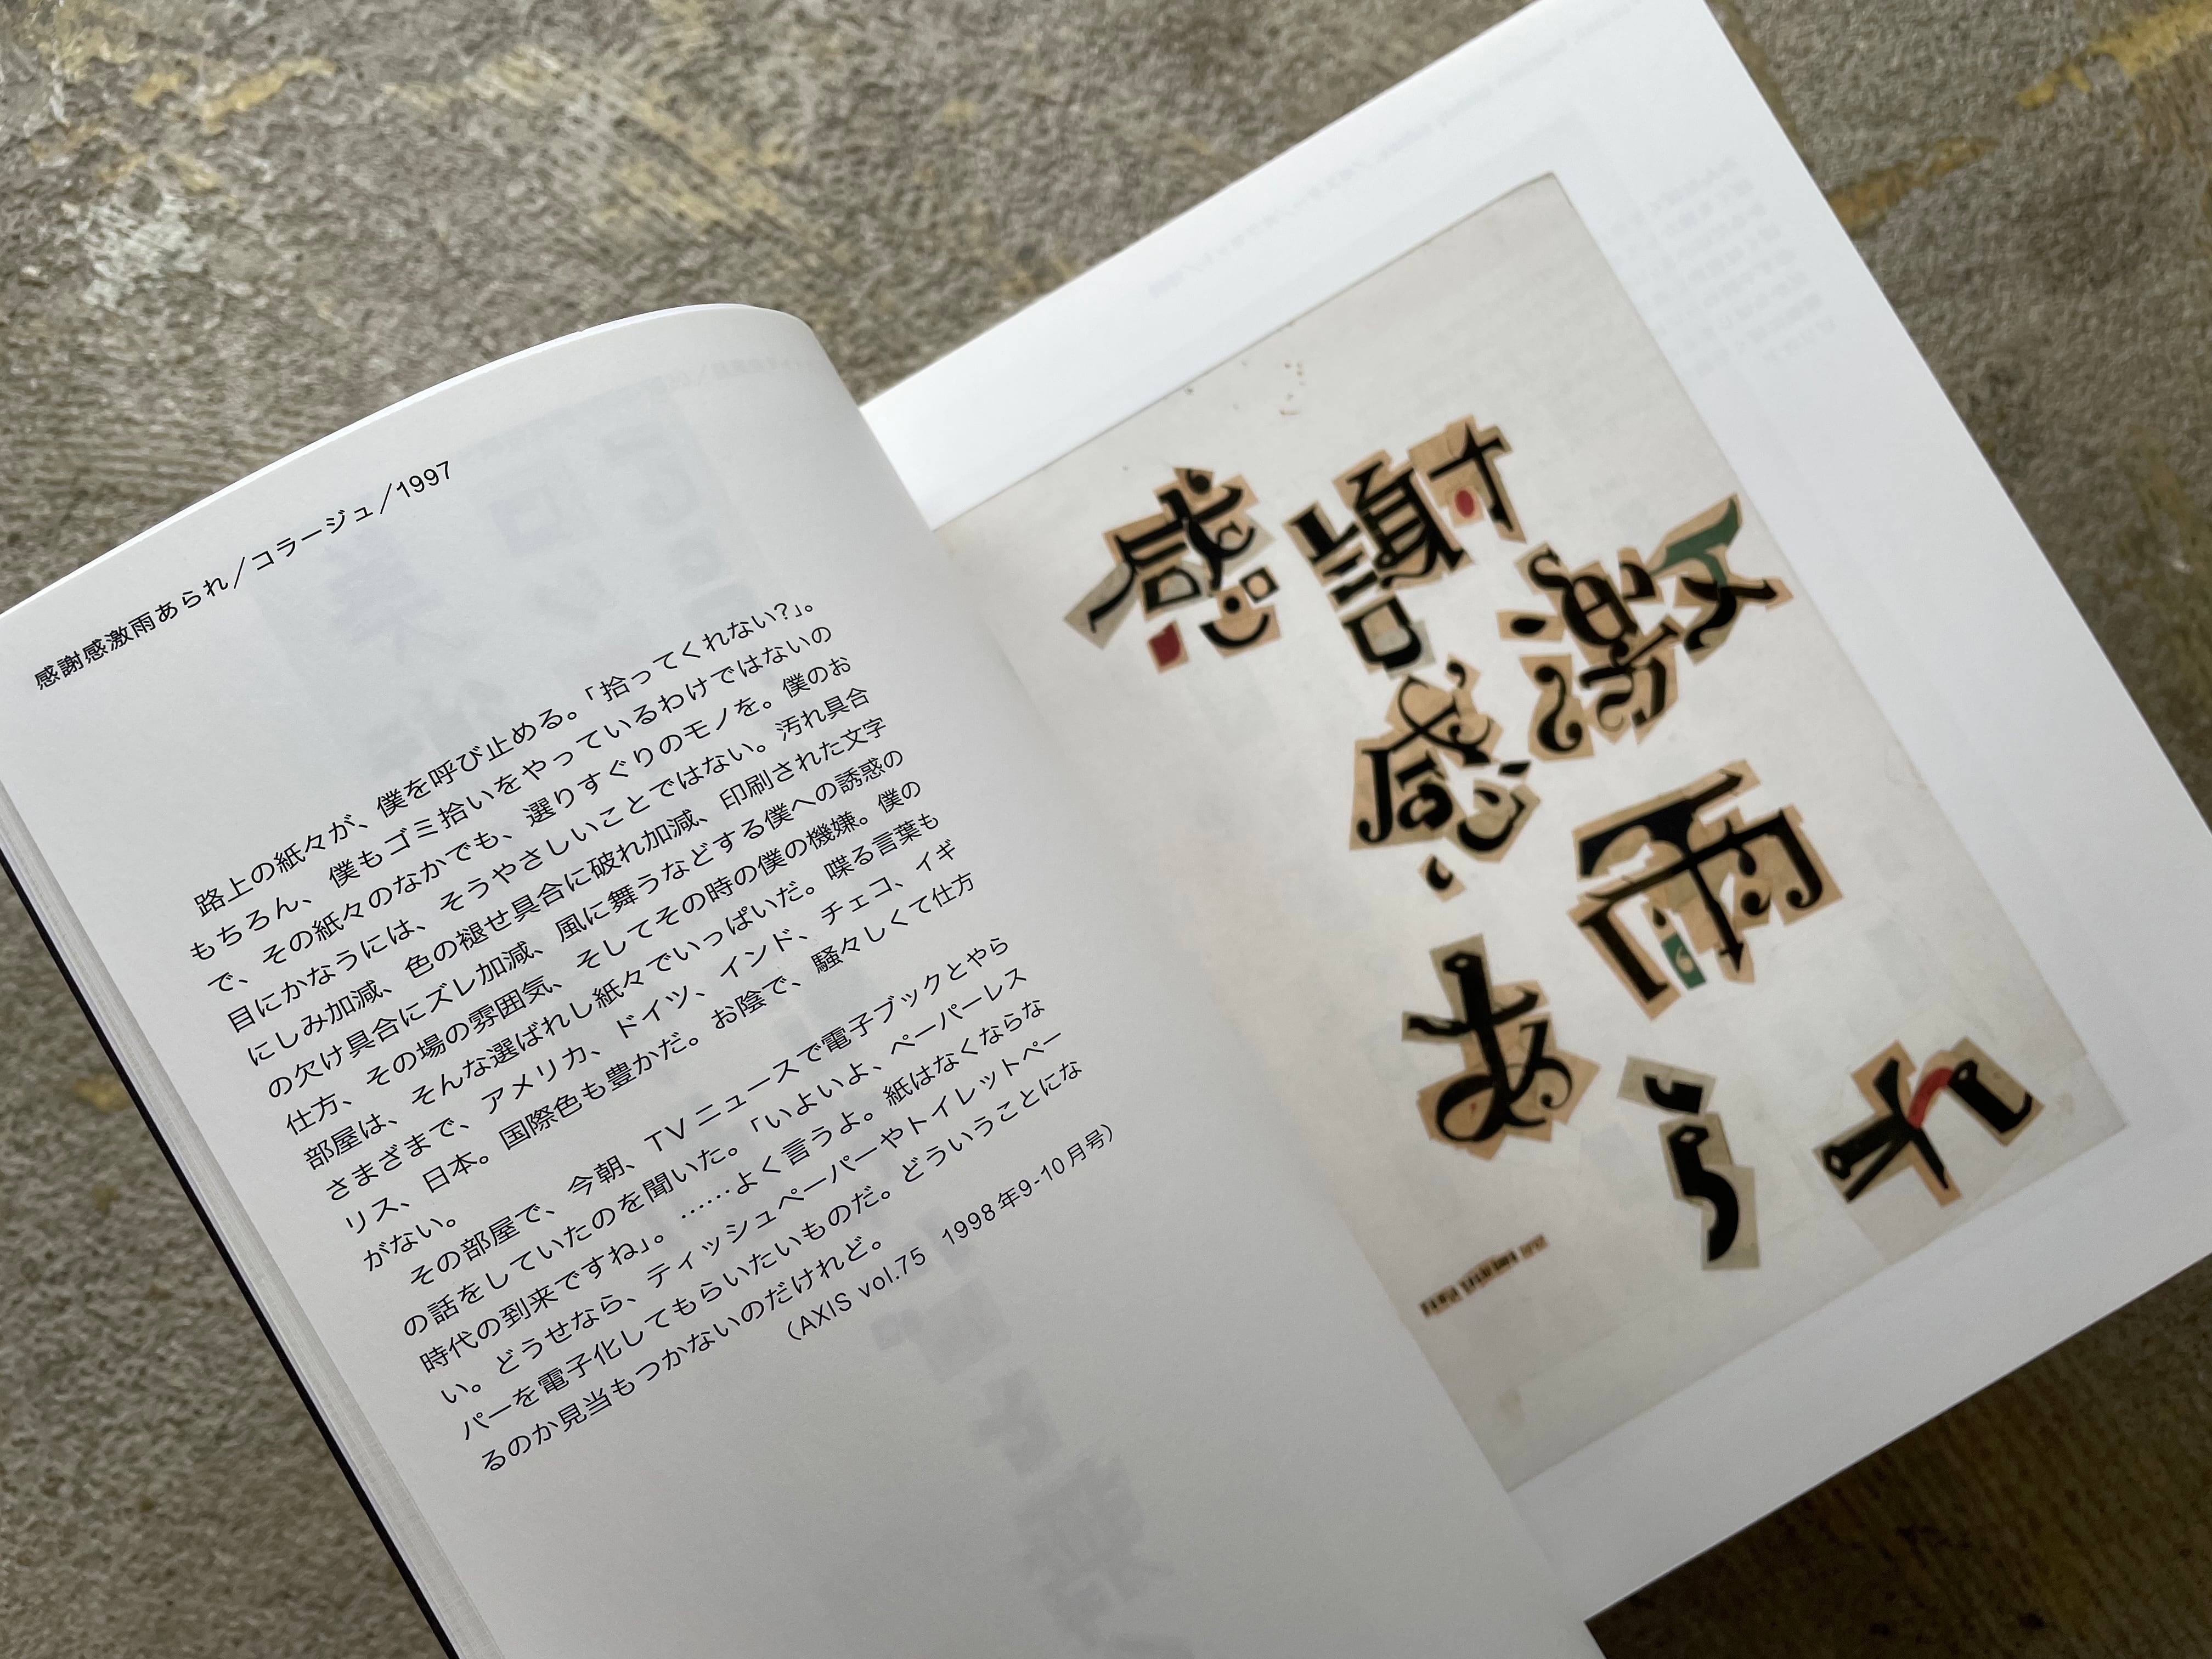 感謝感激雨あられ／コラージュ／1997
路上の紙々が、僕を呼び止める。「拾ってくれない?」。
もちろん、僕もゴミ拾いをやっているわけではないの
で、その紙々のなかでも、選りすぐりのモノを。僕のお
目にかなうには、そうやさしいことではない。汚れ具合
にしみ加減、色の褪せ具合に破れ加減、印刷された文字
の欠け具合にズレ加減、風に舞うなどする僕への誘惑の
仕方、その場の雰囲気、そしてその時の僕の機嫌。僕の
部屋は、そんな選ばれし紙々でいっぱいだ。喋る言葉も
さまざまで、アメリカ、ドイツ、インド、チェコ、イギ
リス、日本。国際色も豊かだ。お陰で、騒々しくて仕方
がない。
その部屋で、今朝、TVニュースで電子ブックとやら
の話をしていたのを聞いた。「いよいよ、ペーパーレス
時代の到来ですね」。……よく言うよ。紙はなくならな
い。どうせなら、ティッシュペーパーやトイレットペー
パーを電子化してもらいたいものだ。どういうことにな
るのか見当もつかないのだけれど。
（AXIS vol.75 1998年9-10月号）
感謝
感激
雨
あられ